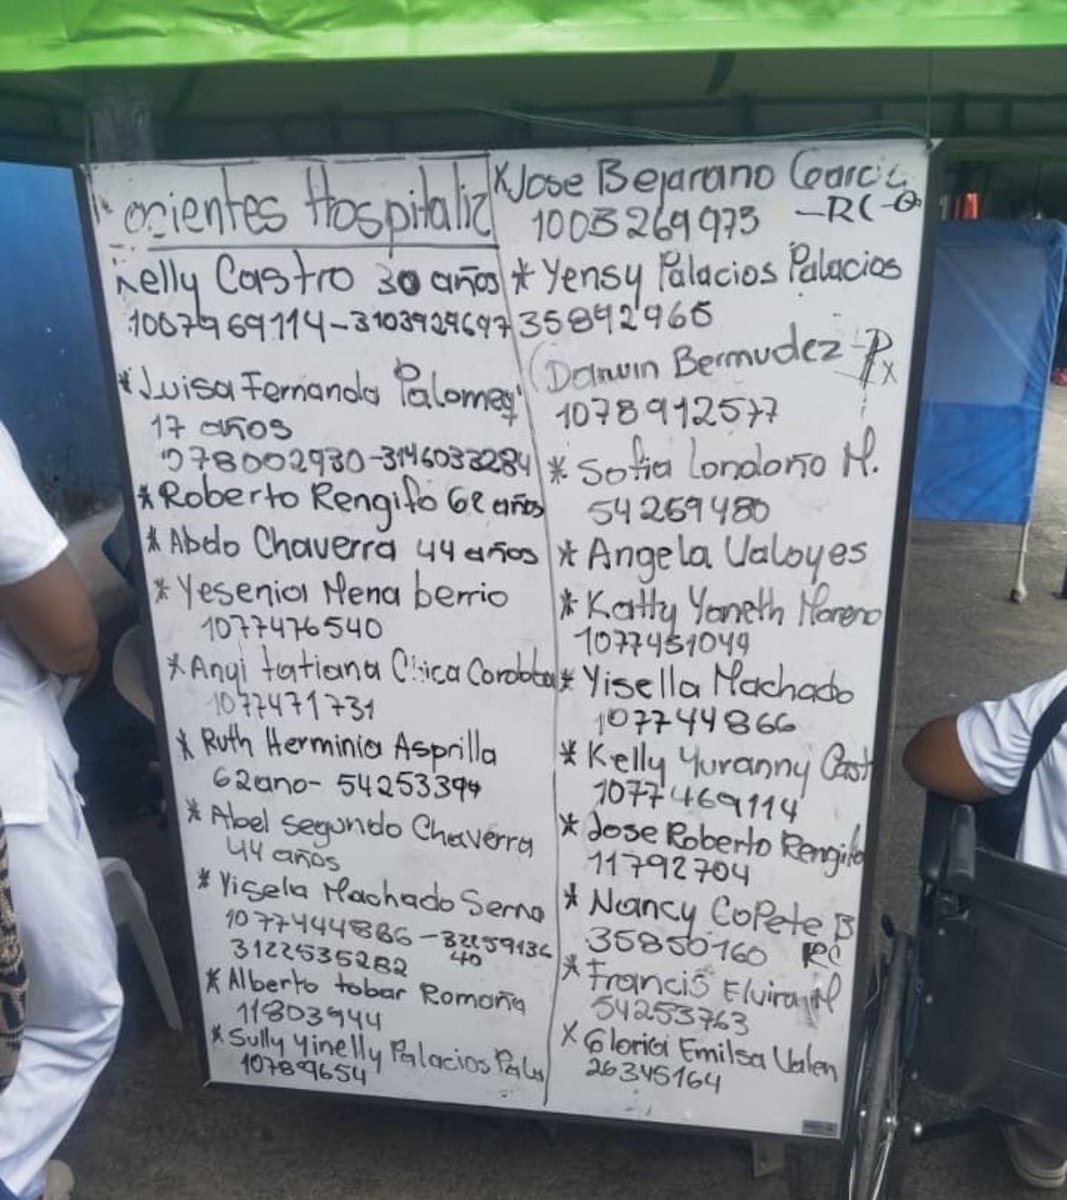 Pacientes Hospitaliz
Kelly Castro 30 años
1007969114-3103929697
* Luisa Fernanda Palomeq
17 años
1078002930-3146033284
* Roberto Rengifo 62 años
* Abdo Chaverra 44 años
* Yesenia Mena berrio
1077476540
* Anyi tatiana Chica Cordoba
1077471731
* Ruth Herminia Asprilla
62ano- 54253394
* Abel segundo Chaverra
44 años
* Yisela Machado Serna
1077444886-32259134
40
3122535282
* Alberto tobar Romaña
11803944
* Sully Yinelly Palacios Pala
107899654
* Jose Bejarano Garcia
1003269973 -RC-
* Yensy Palacios Palacios
35892965
(Darwin Bermudez -Rx
1078912577
* Sofia Londoño M.
54259480
* Angela Valoyes
* Katty Yaneth Moreno
1077451049
* Yisella Machado
107744866
* Kelly Yuranny Cast
1077469114
* Jose Roberto Rengifo
11792704
* Nancy Copete B
35850160 RC
* Francis Elvira M
54253763
* Gloria Emilsa Valen
26345164